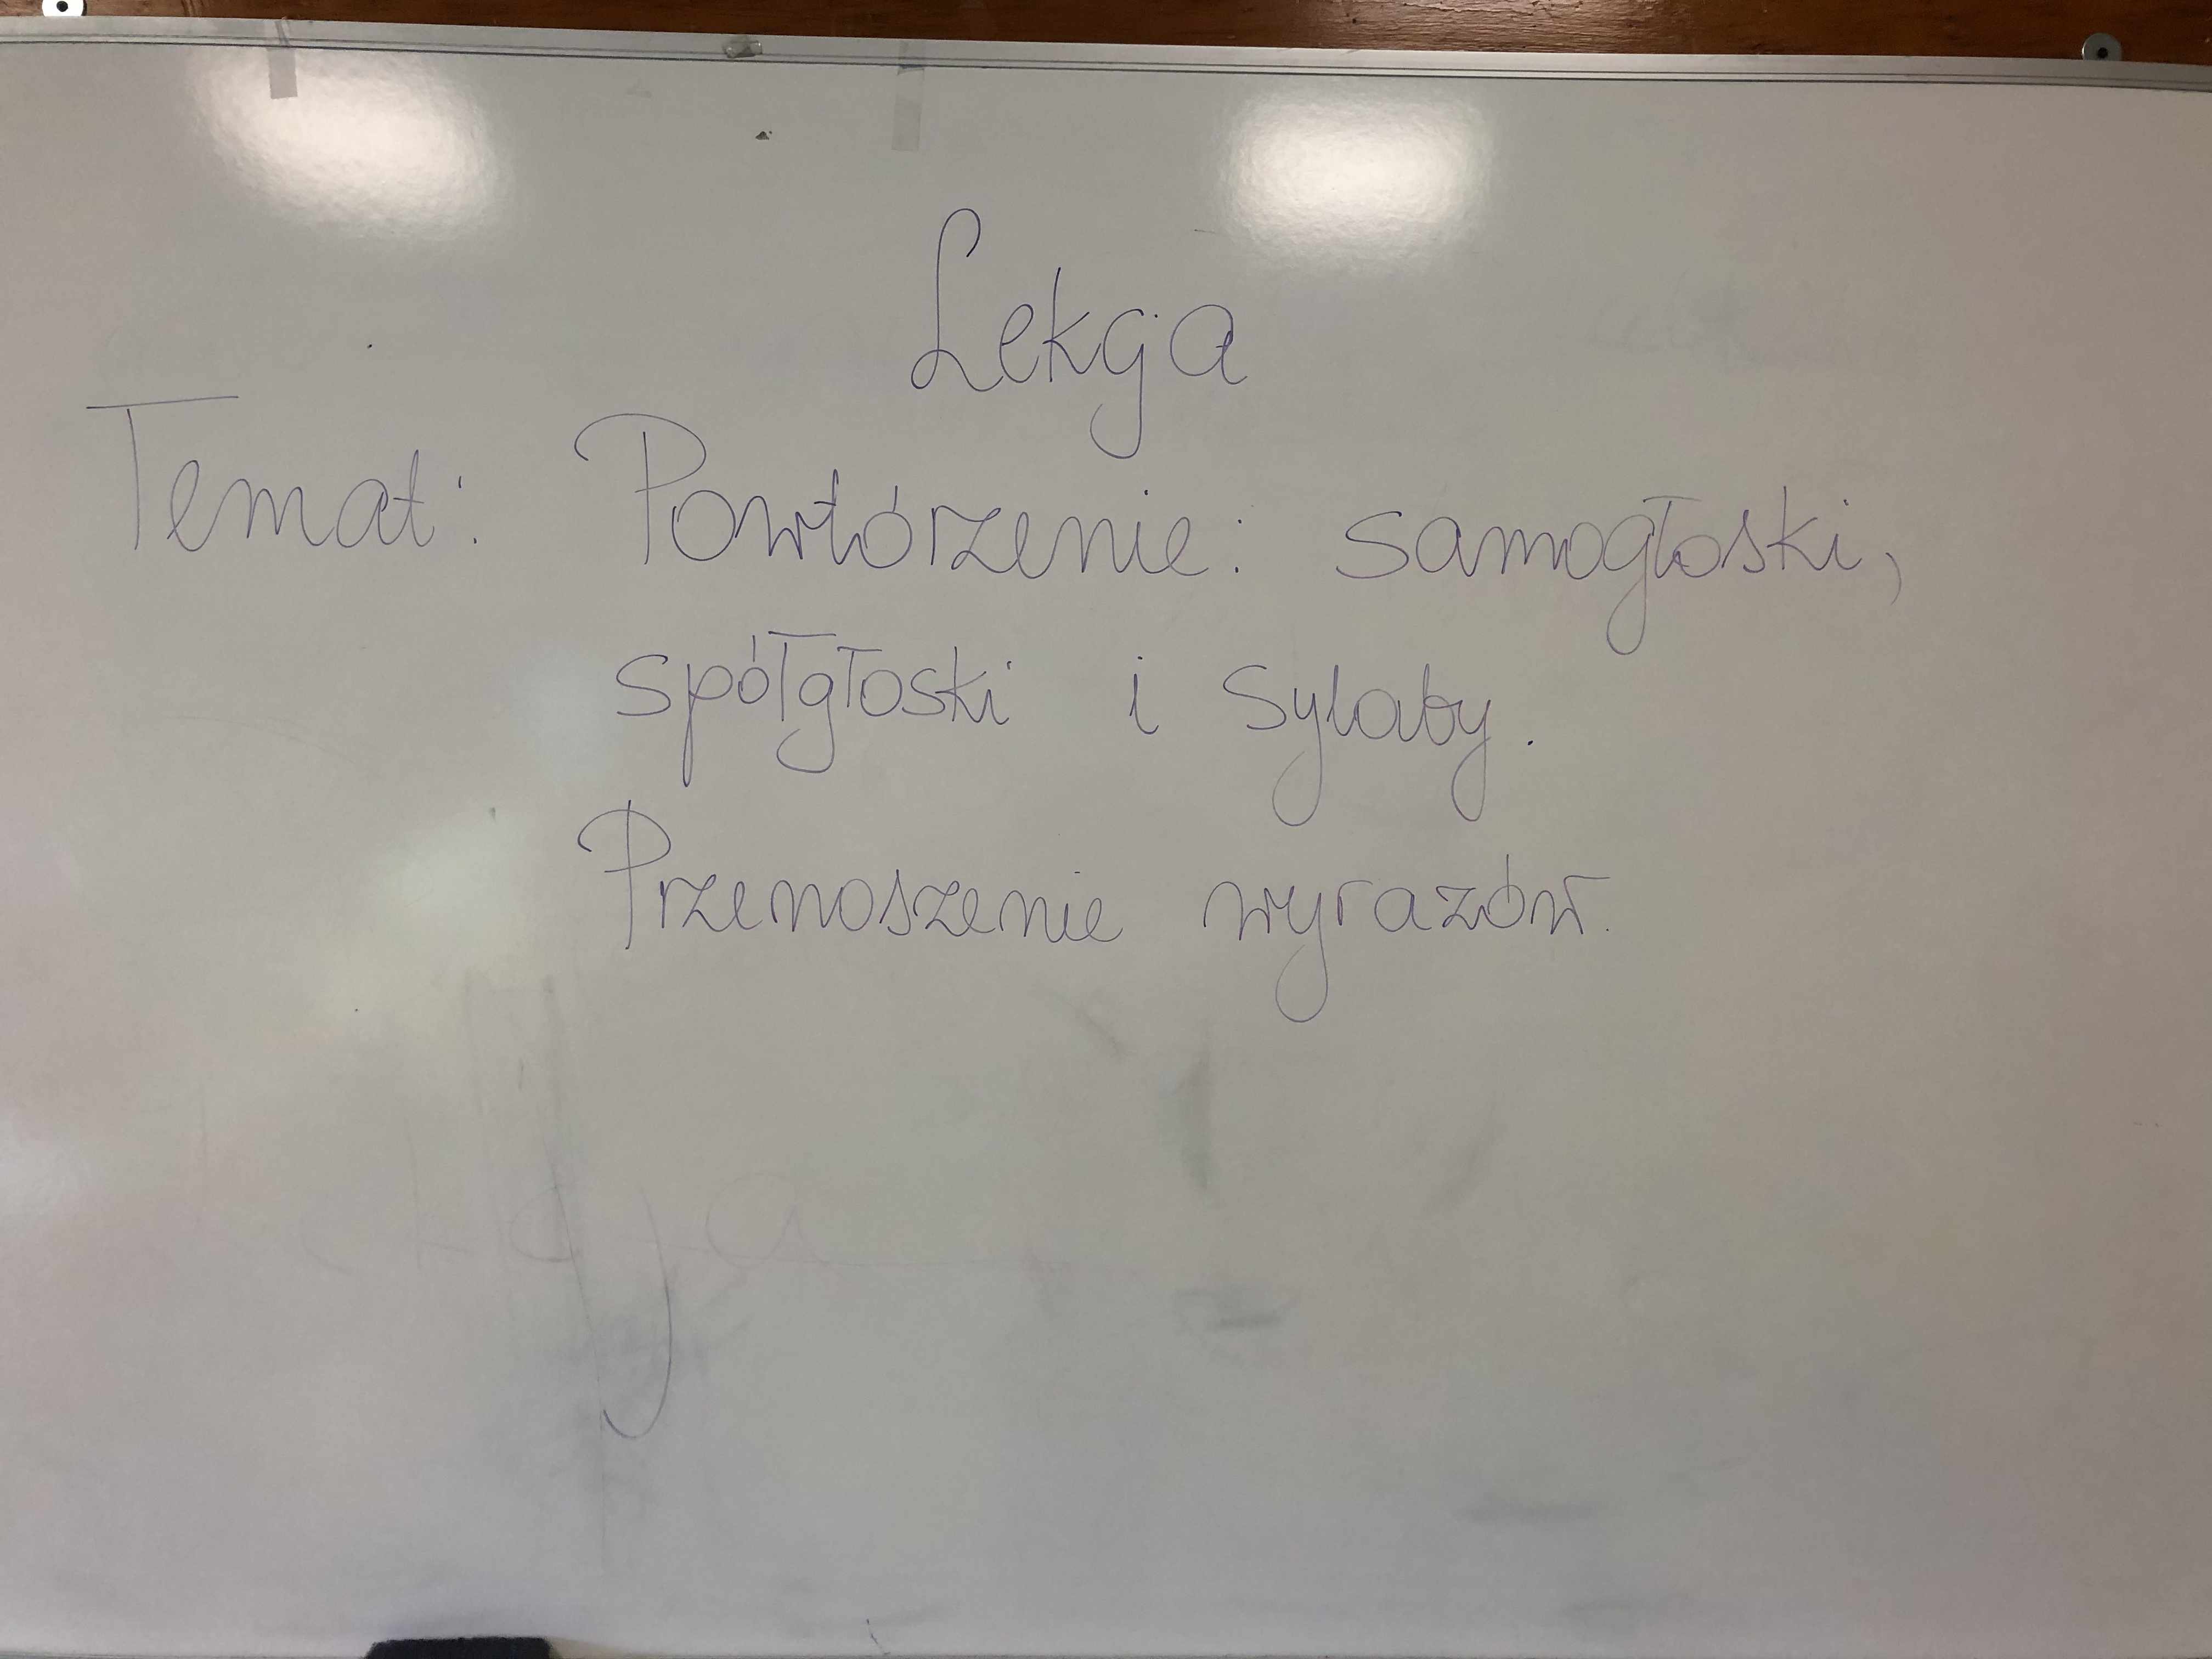 Lekcja
Temat: Powtórzenie: samogłoski,
spółgłoski i sylaby.
Przenoszenie wyrazów.